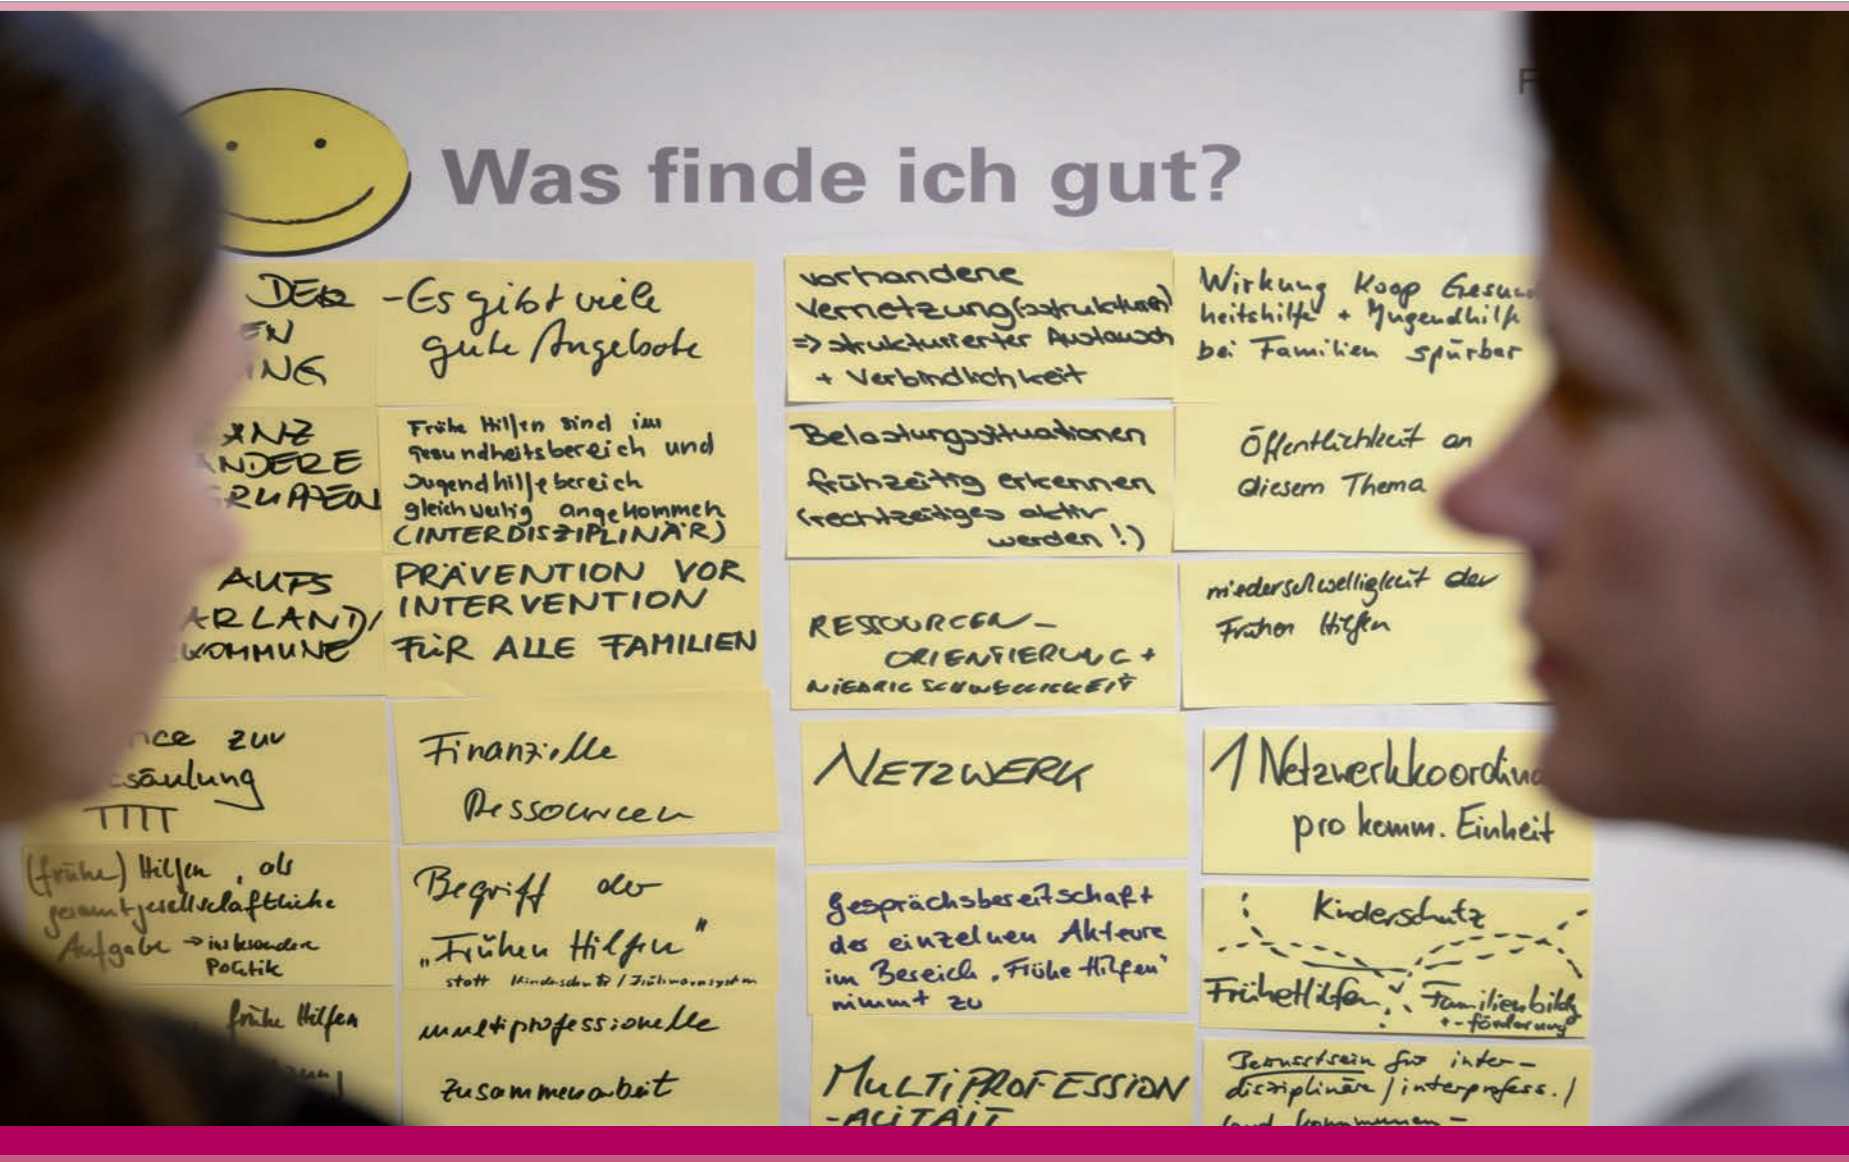 F
Was finde ich gut?
DER
EN
ING
- Es gibt viele
gute Angebote
vorhandene
Vernetzung(sstrukturen)
=> strukturierter Austausch
+ Verbindlichkeit
Wirkung Koop Gesun
heitshilfe + Jugendhilfe
bei Familien spürbar
ANZ
ANDERE
GRUPPEN
Frühe Hilfen sind im
Gesundheitsbereich und
Jugendhilfebereich
gleichwertig angekommen
(INTERDISZIPLINÄR)
Belastungssituationen
frühzeitig erkennen
(rechtzeitiges aktiv
werden!)
Öffentlichkeit an
diesem Thema
AUFS
ARLAND/
KOMMUNE
PRÄVENTION VOR
INTERVENTION
FÜR ALLE FAMILIEN
RESSOURCEN-
ORIENTIERUNG +
NIEDRIGSCHWELLIGKEIT
niederschwelligkeit der
Frühen Hilfen
nce zur
säulung
Finanzielle
Ressourcen
NETZWERK
1 Netzwerkkoordina
pro komm. Einheit
(frühe) Hilfen, als
gesamtgesellschaftliche
Aufgabe → insbesondere
Politik
Begriff der
„Frühen Hilfen"
statt Kinderschutz / Frühwarnsystem
Gesprächsbereitschaft
der einzelnen Akteure
im Bereich „Frühe Hilfen"
nimmt zu
Kinderschutz
Frühe Hilfen
Familienbildg
+ -förderung
frühe Hilfen
multiprofessionelle
Zusammenarbeit
MULTIPROFESSION
-ALITÄIT
Bewusstsein für inter-
disziplinäre / interprofess. /
kommunen-